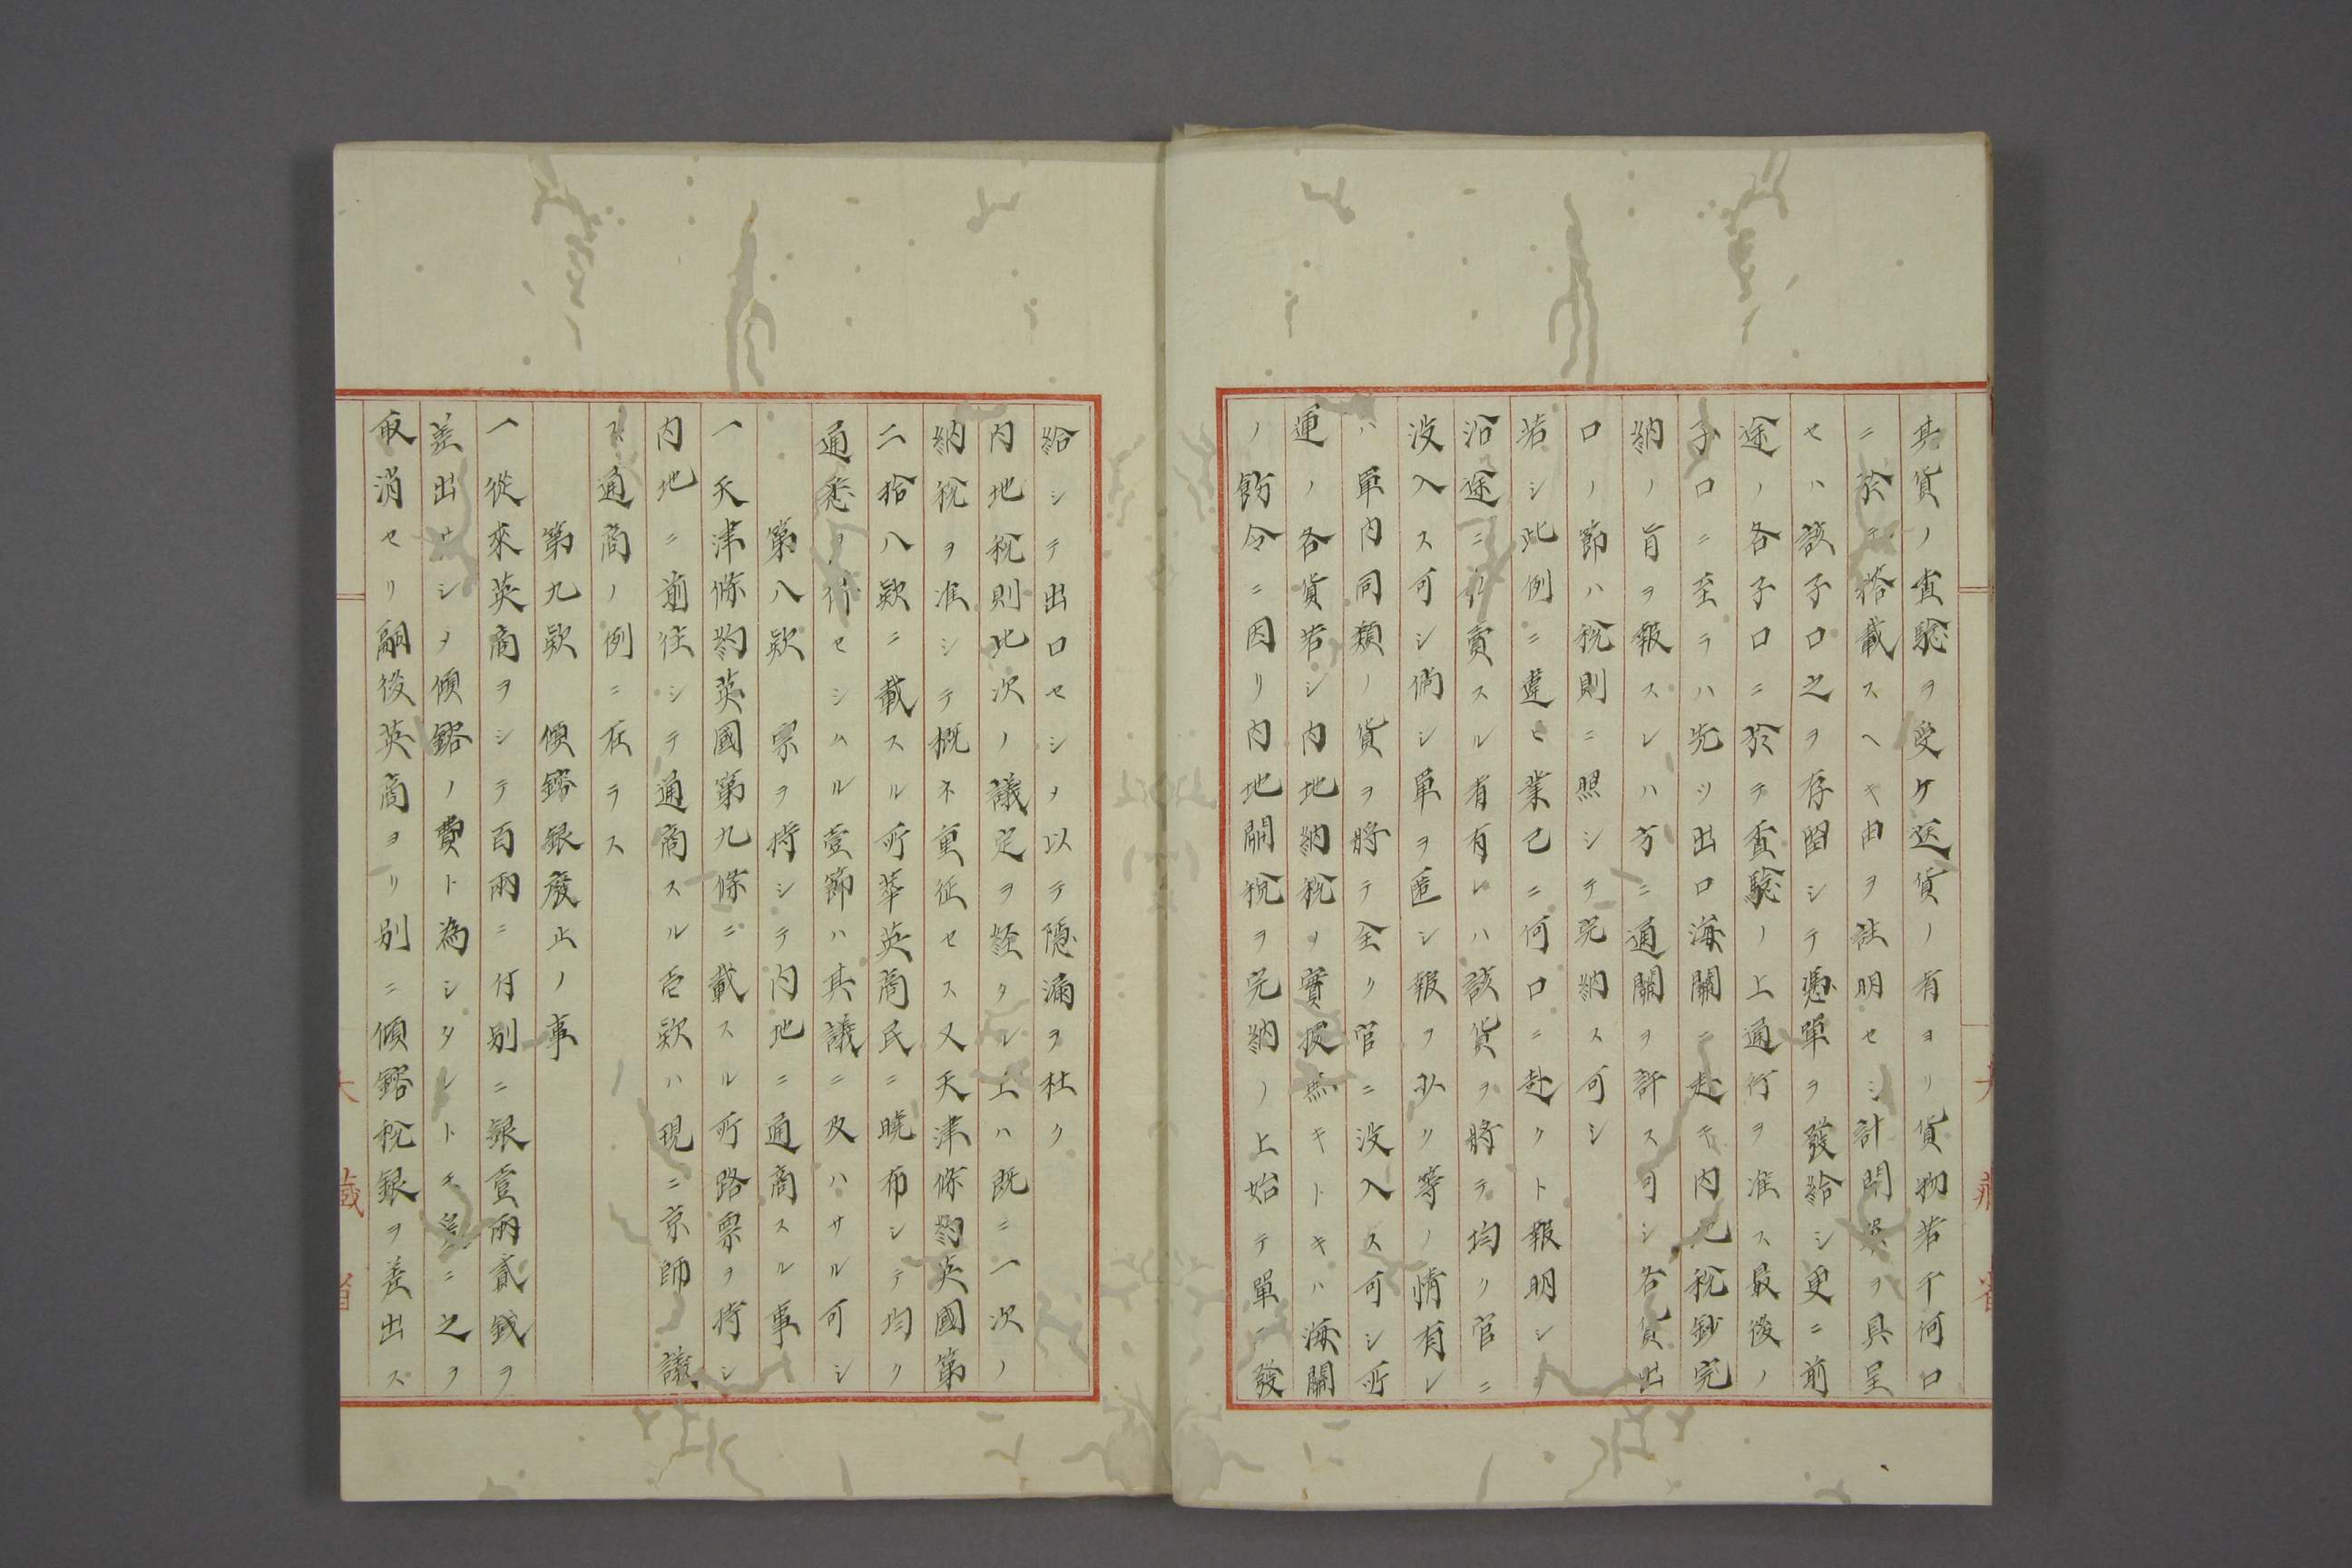 其貨ノ査驗ヲ受ケ送貨ノ有ヨリ貨物若干何口
ニ於テ搭載スヘキ由ヲ註明セシ計開具ヲ具呈
セハ該子口之ヲ存留シテ憑單ヲ發給シ更ニ前
途ノ各子口ニ於テ査驗ノ上通行ヲ准ス最後ノ
子口ニ至ラハ先ツ出口海關ニ赴キ内地稅鈔完
納ノ旨ヲ報スレハ方ニ通關ヲ許ス可シ各貨出
口ノ節ハ稅則ニ照シテ完納ス可シ
若シ此例ニ違ヒ業已ニ何口ニ赴クト報明シ
沿途ニ行賣スル有有レハ該貨ヲ將テ均ク官ニ
没入ス可シ倘シ單ヲ匿シ報ヲ少クノ等ノ情有レ
ハ單内同類ノ貨ヲ將テ全ク官ニ没入ス可シ所
運ノ各貨若シ内地納稅ノ實據無キトキハ海關
ノ飭令ニ因リ内地關稅ヲ完納ノ上始テ單ニ發
給シテ出口セシヲ以テ隱漏ヲ杜ク
内地稅則此次ノ議定ヲ經タレ上ハ既ニ一次ノ
納稅ヲ准シテ概ネ重征セス又天津條約英國第
二拾八款ニ載スル所華英商民ニ曉布シテ均ク
通悉ヲ行セシムル壹節ハ其議ニ及ハサル可シ
第八款 票ヲ持シテ内地ニ通商スル事
一天津條約英國第九條ニ載スル所路票ヲ持シ
内地ニ前往シテ通商スル壱款ハ現ニ京師議
ス通商ノ例ニ在ラス
第九款 傾鎔銀廢止ノ事
一從來英商ヲシテ百兩ニ付別ニ銀壹兩貳錢ヲ
差出サシヲ傾鎔ノ費ト為シタレトモ ニ之ヲ
取消セリ嗣後英商ヲリ別ニ傾鎔稅銀ヲ差出ス
大藏省